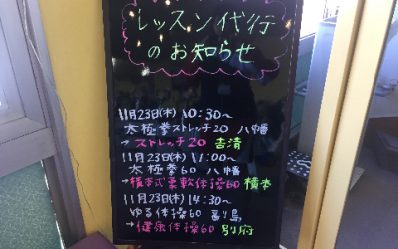 レッスン代行
のお知らせ
11月23日(木) 10:30～
太極拳ストレッチ20 八幡
→ストレッチ20 吉清
11月23日(木) 11:00～
太極拳60 八幡
→橋本式柔軟体操60 橋本
11月23日(木) 14:30～
ゆる体操60 副島
→健康体操60 別府